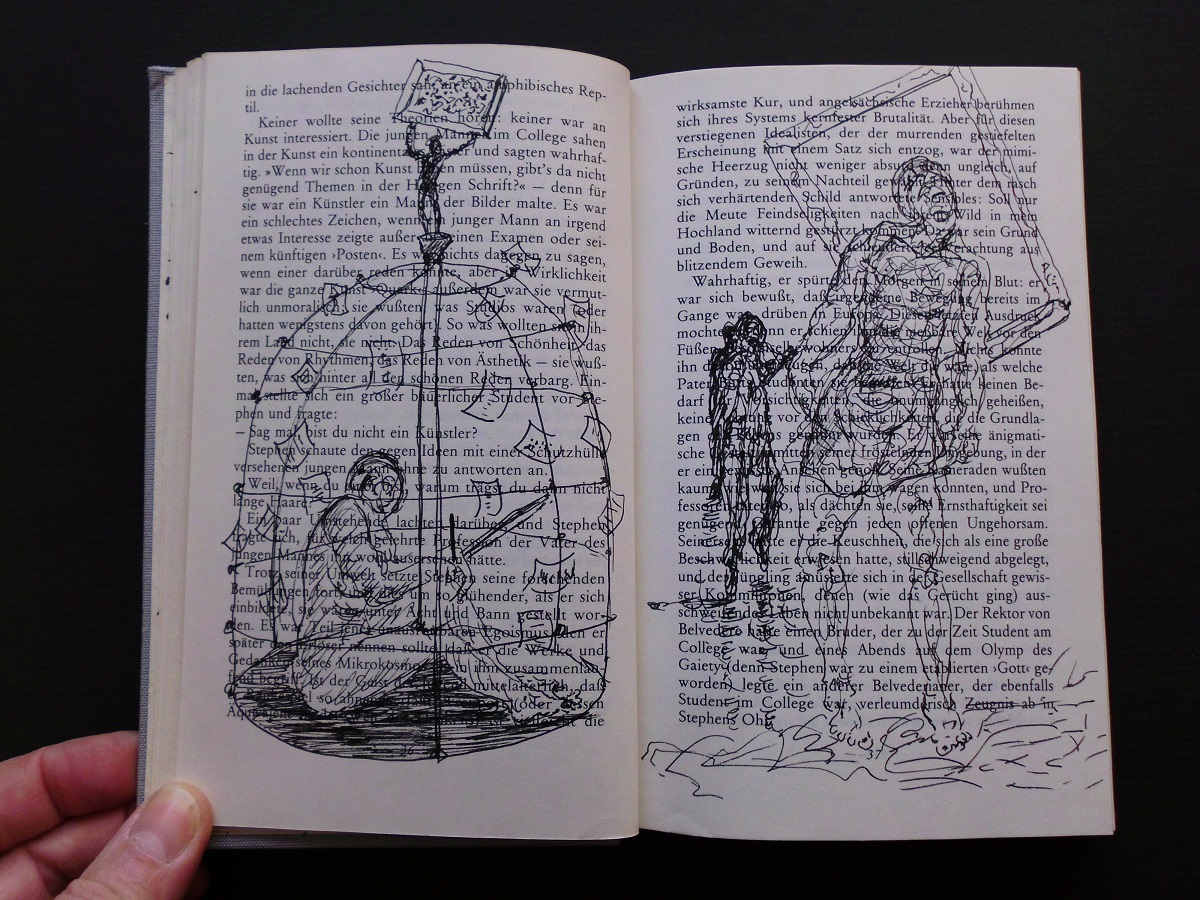 in die lachenden Gesichter sah, an ein amphibisches Rep-
til.
Keiner wollte seine Theorien hören: keiner war an
Kunst interessiert. Die jungen Männer im College sahen
in der Kunst ein kontinentales Laster und sagten wahrhaf-
tig. »Wenn wir schon Kunst haben müssen, gibt's da nicht
genügend Themen in der Heiligen Schrift?« — denn für
sie war ein Künstler ein Mann der Bilder malte. Es war
ein schlechtes Zeichen, wenn ein junger Mann an irgend
etwas Interesse zeigte außer seinen Examen oder sei-
nem künftigen ›Posten‹. Es war nichts dagegen zu sagen,
wenn einer darüber reden konnte, aber in Wirklichkeit
war die ganze Kunst ›Quark‹: außerdem war sie vermut-
lich unmoralisch; sie wußten, was Studios waren (oder
hatten wenigstens davon gehört). So was wollten sie in ih-
rem Land nicht, nie nicht. Das Reden von Schönheit, das
Reden von Rhythmen, das Reden von Ästhetik — sie wuß-
ten, was sich hinter all den schönen Reden verbarg. Ein-
mal stellte sich ein großer bäuerlicher Student vor Ste-
phen und fragte:
— Sag mal, bist du nicht ein Künstler?
Stephen schaute den gegen Ideen mit einer Schutzhülle
versehenen jungen Mann ohne zu antworten an.
— Weil, wenn du einer bist, warum trägst du dann nicht
lange Haare?
Ein paar Umstehende lachten darüber und Stephen
fragte sich, für welch gelehrte Profession der Vater des
jungen Mannes ihn wohl ausersehen hätte.
Trotz seiner Umwelt setzte Stephen seine forschenden
Bemühungen fort und das um so glühender, als er sich
einbildete, sie wären unter Acht und Bann gestellt wor-
den. Es war Teil jenes unausrottbaren Egoismus, den er
später nennen sollte, daß er die Werke und
Gedanken seines Mikrokosmos zusammenlau-
fend Ist der Geist mittelalterlich, daß
oder
die
26
wirksamste Kur, und angelsächsische Erzieher berühmen
sich ihres Systems kernfester Brutalität. Aber für diesen
verstiegenen Idealisten, der der murrenden gestiefelten
Erscheinung mit einem Satz sich entzog, war der mimi-
sche Heerzug nicht weniger absurd denn ungleich, auf
Gründen, zu seinem Nachteil gewählt. Hinter dem rasch
sich verhärtenden Schild antwortete Sensibles: Soll nur
die Meute Feindseligkeiten nach ihrem Wild in mein
Hochland witternd gestürzt kommen. Da war sein Grund
und Boden, und auf sie schleuderte er Verachtung aus
blitzendem Geweih.
Wahrhaftig, er spürte den Morgen in seinem Blut: er
war sich bewußt, daß irgendeine Bewegung bereits im
Gange war, drüben in Europa. Diesen letzten Ausdruck
mochte er, denn er schien ihm die meßbare Welt vor den
Füßen des Inselbewohners zu entrollen. Nichts konnte
ihn davon überzeugen, daß die Welt die wäre, als welche
Pater Butts Studenten sie Er hatte keinen Be-
darf Vorsichtigkeiten, die unumgänglich geheißen,
keine vor den Schicklichkeiten, die die Grundla-
gen des Lebens genannt wurden. Er änigmati-
sche inmitten seiner fröstelnden Umgebung, in der
er ein Ansehen genoß. Seine Kameraden wußten
kaum, wie weit sie sich bei ihm wagen konnten, und Pro-
fessoren taten so, als dächten sie, seine Ernsthaftigkeit sei
genügend Garantie gegen jeden offenen Ungehorsam.
Seinerseits hatte er die Keuschheit, die sich als eine große
Beschwerlichkeit erwiesen hatte, stillschweigend abgelegt,
und der Jüngling amüsierte sich in der Gesellschaft gewis-
ser Kommilitonen, denen (wie das Gerücht ging) aus-
schweifendes Leben nicht unbekannt war. Der Rektor von
Belvedere hatte einen Bruder, der zu der Zeit Student am
College war, und eines Abends auf dem Olymp des
Gaiety (denn Stephen war zu einem etablierten ›Gott‹ ge-
worden) legte ein anderer Belvederianer, der ebenfalls
Student im College war, verleumderisch Zeugnis ab in
Stephens Ohr